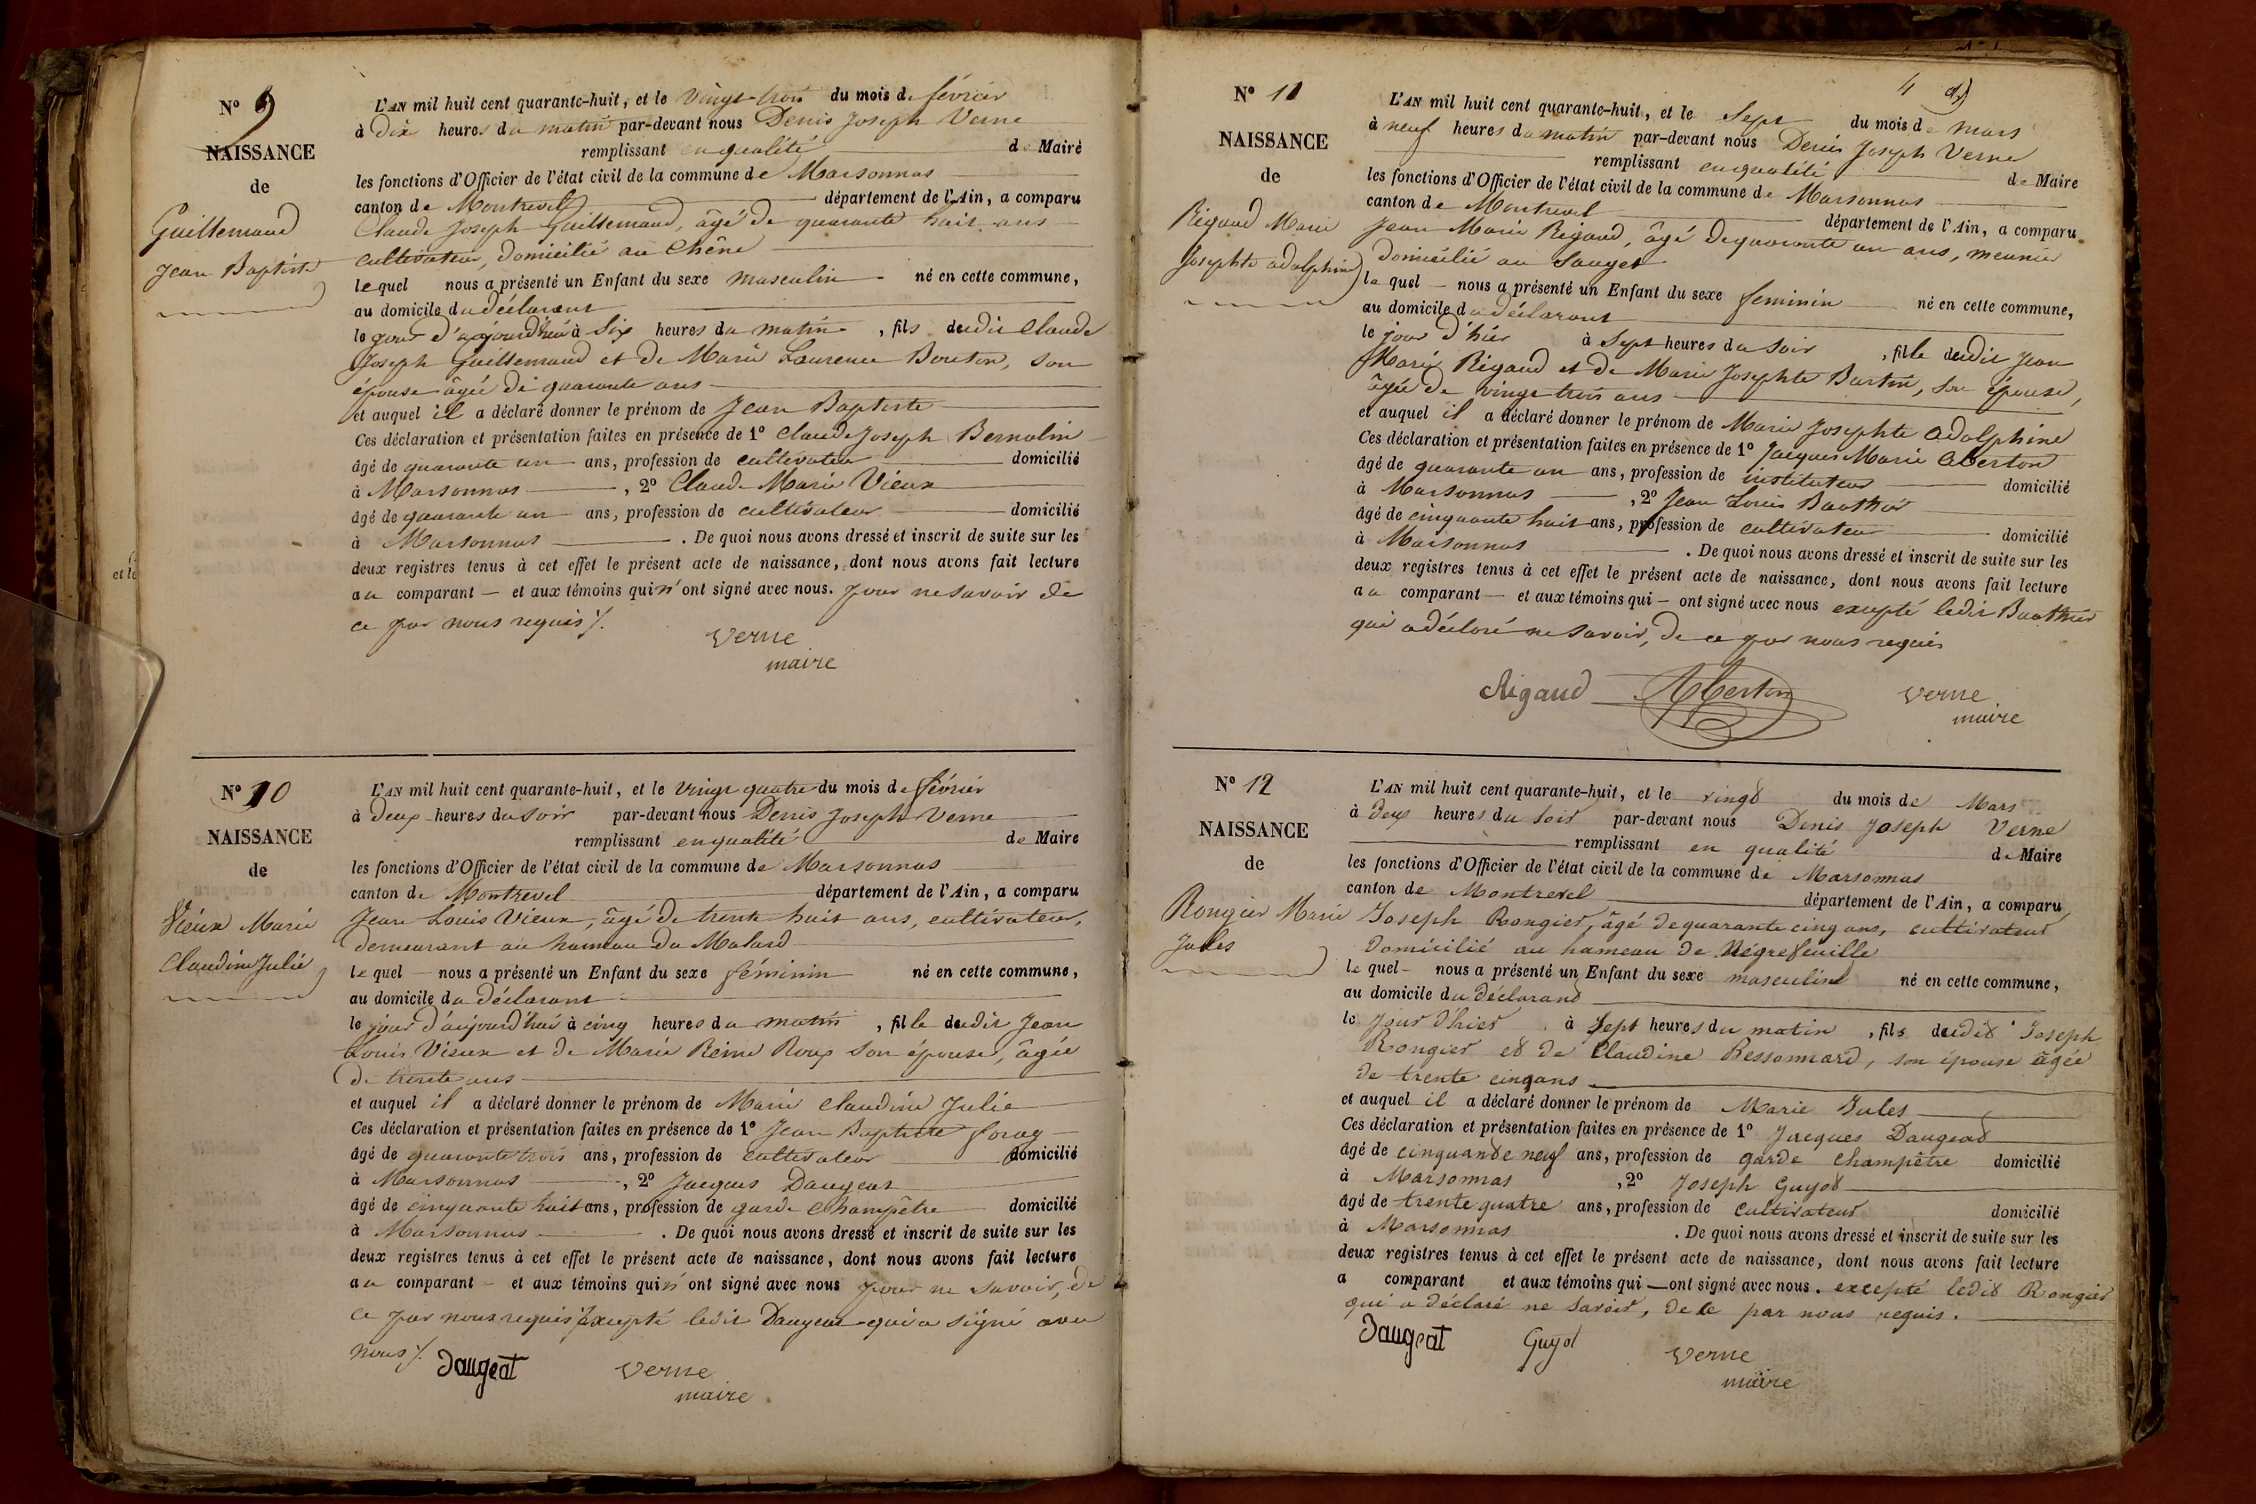 N° 9
NAISSANCE
de
Guillemaud
Jean Baptiste
L'AN mil huit cent quarante-huit, et le vingt-trois du mois de février
à Dix heures du matin par-devant nous Denis Joseph Verne
remplissant en qualité de Maire
les fonctions d'Officier de l'état civil de la commune de Marsonnas
canton de Montrevel département de l'Ain, a comparu
Claude Joseph Guillemaud, âgé de quarante huit ans
cultivateur, domicilié au Chêne
lequel nous a présenté un Enfant du sexe masculin né en cette commune,
au domicile du déclarant
le jour d'aujourd'hui à six heures du matin, fils dudit Claude
Joseph Guillemaud et de Marie Laurence Bouton, son
épouse âgée de quarante ans
et auquel il a déclaré donner le prénom de Jean Baptiste
Ces déclaration et présentation faites en présence de 1° Claude Joseph Bernolin
âgé de quarante un ans, profession de cultivateur domicilié
à Marsonnas, 2° Claude Marie Vieux
âgé de quarante un ans, profession de cultivateur domicilié
à Marsonnas. De quoi nous avons dressé et inscrit de suite sur les
deux registres tenus à cet effet le présent acte de naissance, dont nous avons fait lecture
au comparant et aux témoins qui n'ont signé avec nous. pour ne savoir de
ce par nous requis /.
Verne
maire
N° 10
NAISSANCE
de
Vieux Marie
Claudine Julie
L'AN mil huit cent quarante-huit, et le vingt quatre du mois de février
à deux heures du soir par-devant nous Denis Joseph Verne
remplissant en qualité de Maire
les fonctions d'Officier de l'état civil de la commune de Marsonnas
canton de Montrevel département de l'Ain, a comparu
Jean Louis Vieux, âgé de trente huit ans, cultivateur,
demeurant au hameau du Molard
lequel nous a présenté un Enfant du sexe féminin né en cette commune,
au domicile du déclarant
le jour d'aujourd'hui à cinq heures du matin, fille dudit Jean
Louis Vieux et de Marie Reine Roux son épouse, âgée
de trente ans
et auquel il a déclaré donner le prénom de Marie Claudine Julie
Ces déclaration et présentation faites en présence de 1° Jean Baptiste Foray
âgé de quarante trois ans, profession de cultivateur domicilié
à Marsonnas, 2° Jacques Daugeat
âgé de cinquante huit ans, profession de garde champêtre domicilié
à Marsonnas. De quoi nous avons dressé et inscrit de suite sur les
deux registres tenus à cet effet le présent acte de naissance, dont nous avons fait lecture
au comparant et aux témoins qui n'ont signé avec nous pour ne savoir, de
ce par nous requis excepté ledit Daugeat qui a signé avec
nous /.
Daugeat Verne
maire
4
N° 11
NAISSANCE
de
Rigaud Marie
Josephte adolphine
L'AN mil huit cent quarante-huit, et le sept du mois de mars
à neuf heures du matin par-devant nous Denis Joseph Verne
remplissant en qualité de Maire
les fonctions d'Officier de l'état civil de la commune de Marsonnas
canton de Montrevel département de l'Ain, a comparu
Jean Marie Rigaud, âgé de quarante un ans, meunier
domicilié au Sauget
lequel nous a présenté un Enfant du sexe féminin né en cette commune,
au domicile du déclarant
le jour d'hier à sept heures du soir, fille dudit Jean
Marie Rigaud et de Marie Josephte Burtin, son épouse,
âgée de vingt trois ans
et auquel il a déclaré donner le prénom de Marie Josephte adolphine
Ces déclaration et présentation faites en présence de 1° Jacques Marie Aberton
âgé de quarante un ans, profession de instituteur domicilié
à Marsonnas, 2° Jean Louis Bauthier
âgé de cinquante huit ans, profession de cultivateur domicilié
à Marsonnas. De quoi nous avons dressé et inscrit de suite sur les
deux registres tenus à cet effet le présent acte de naissance, dont nous avons fait lecture
au comparant et aux témoins qui ont signé avec nous excepté ledit Bauthier
qui a déclaré ne savoir, de ce par nous requis
Rigaud Aberton Verne
maire
N° 12
NAISSANCE
de
Rongier Marie
Jules
L'AN mil huit cent quarante-huit, et le vingt du mois de Mars
à deux heures du soir par-devant nous Denis Joseph Verne
remplissant en qualité de Maire
les fonctions d'Officier de l'état civil de la commune de Marsonnas
canton de Montrevel département de l'Ain, a comparu
Joseph Rongier, âgé de quarante cinq ans, cultivateur
domicilié au hameau de Négrefeuille
lequel nous a présenté un Enfant du sexe masculin né en cette commune,
au domicile du déclarant
le jour d'hier à sept heures du matin, fils dudit Joseph
Rongier et de Claudine Ressonnard, son épouse âgée
de trente cinq ans
et auquel il a déclaré donner le prénom de Marie Jules
Ces déclaration et présentation faites en présence de 1° Jacques Daugeat
âgé de cinquante neuf ans, profession de garde champêtre domicilié
à Marsonnas, 2° Joseph Guyot
âgé de trente quatre ans, profession de cultivateur domicilié
à Marsonnas. De quoi nous avons dressé et inscrit de suite sur les
deux registres tenus à cet effet le présent acte de naissance, dont nous avons fait lecture
a comparant et aux témoins qui ont signé avec nous. excepté ledit Rongier
qui a déclaré ne savoir, de ce par nous requis.
Daugeat Guyot Verne
maire